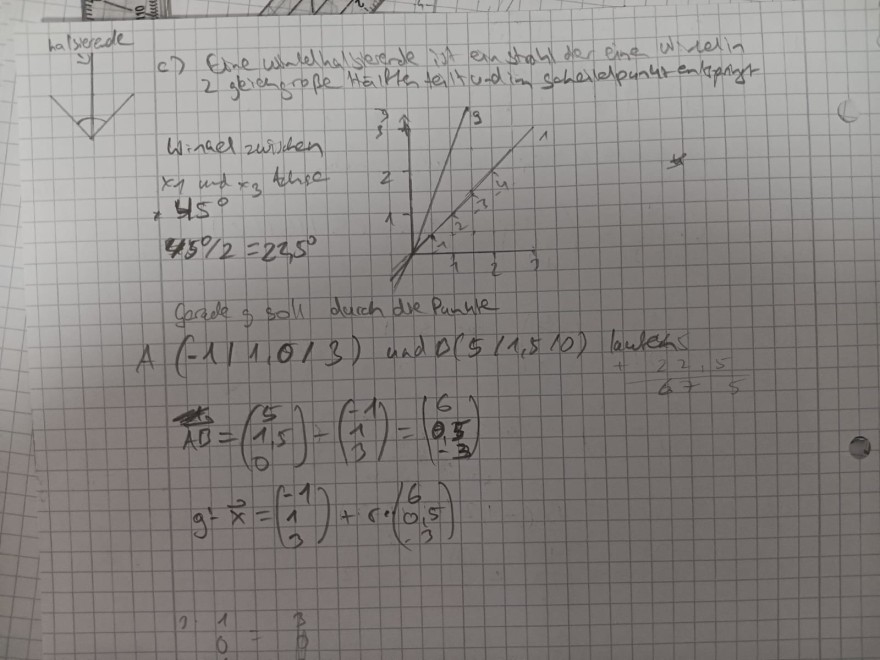 halbierede
c) Eine winkelhalbierende ist ein strahl der eine Winkel in
2 gleichgroße Hälften teilt und im scheitelpunkt entspringt
Winkel zwischen
x1 und x3 Achse
45°
45°/2 = 22,5°
3 g 1
2
1
1 2 3 4
1 2 3
Gerade g soll durch die Punkte
A (-1 / 1,0 / 3) und B (5 / 1,5 / 0) laufen
+ 22,5
67 5
AB = (5 1,5 0) - (-1 1 3) = (6 0,5 -3)
g: x = (-1 1 3) + r · (6 0,5 -3)
1 3
0 = 0